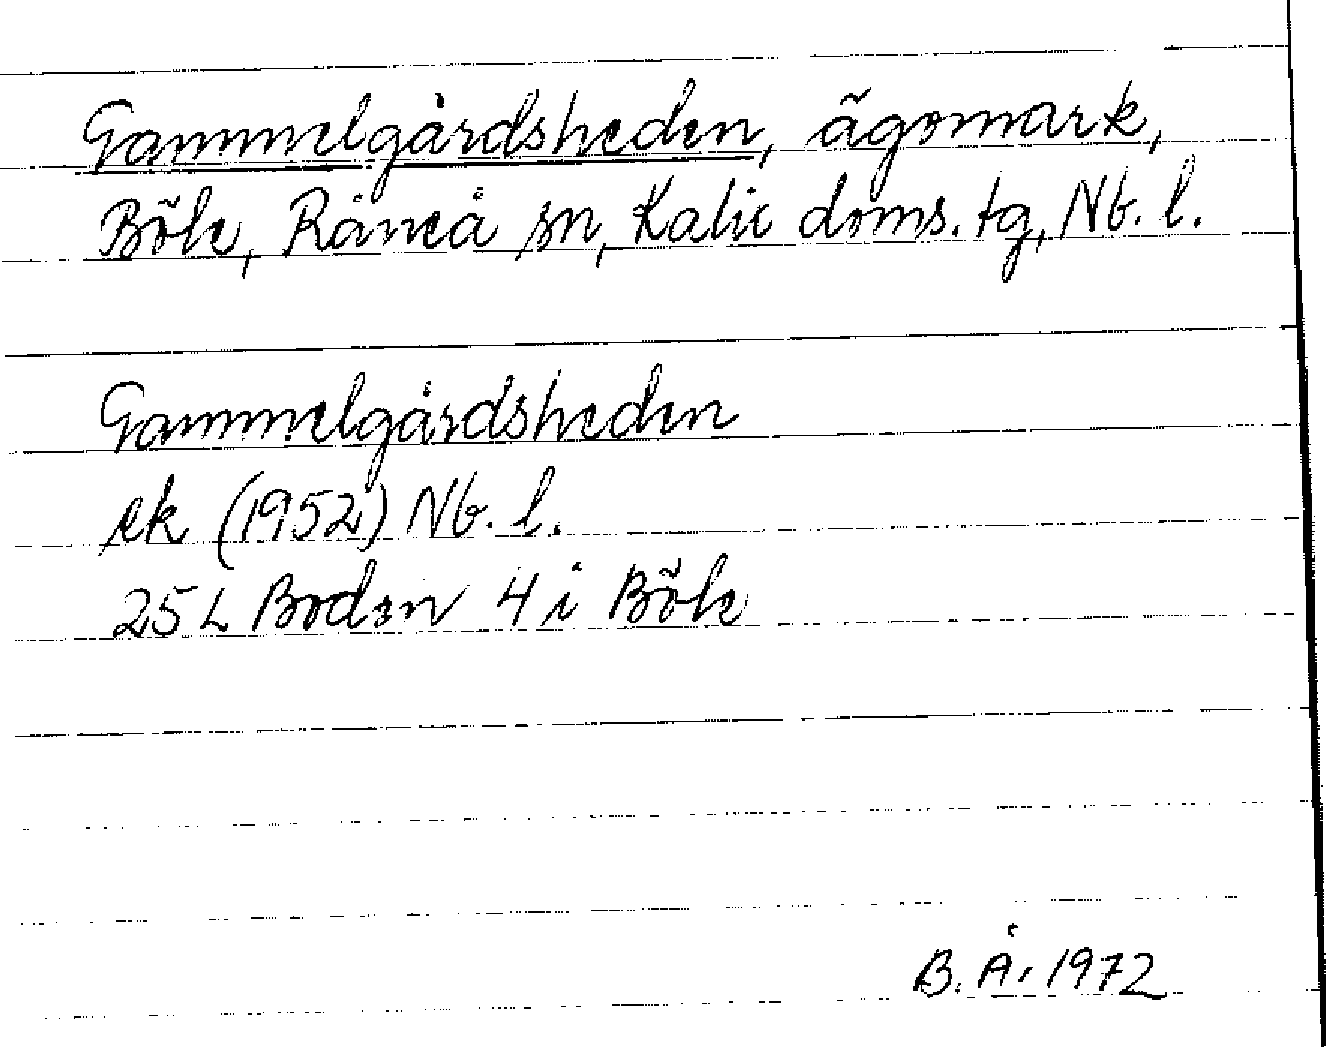 Gammelgårdsheden, ägomark,
Böle, Råneå sn, Kalix doms. tg, Nb. l.
Gammelgårdsheden
ek (1952) Nb. l.
25 L Boden 4 i Böle
B. Å. 1972